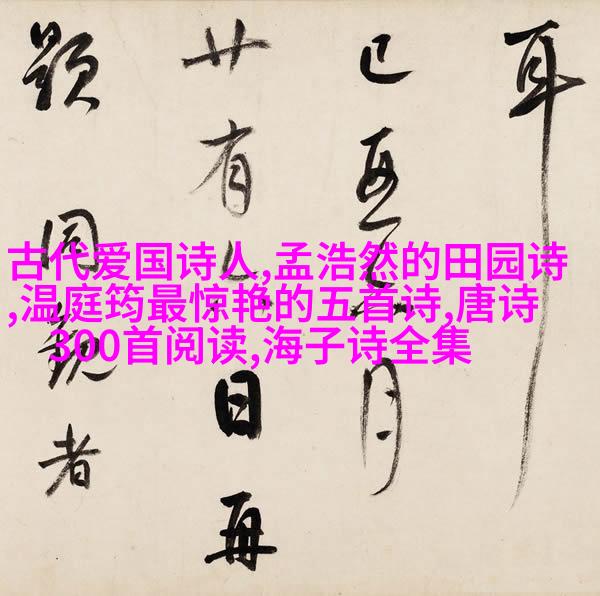 古代爱国诗人,孟浩然的田园诗
,温庭筠最惊艳的五首诗,唐诗
300首阅读,海子诗全集
耳
已 月
廿有 日再
題同觀者